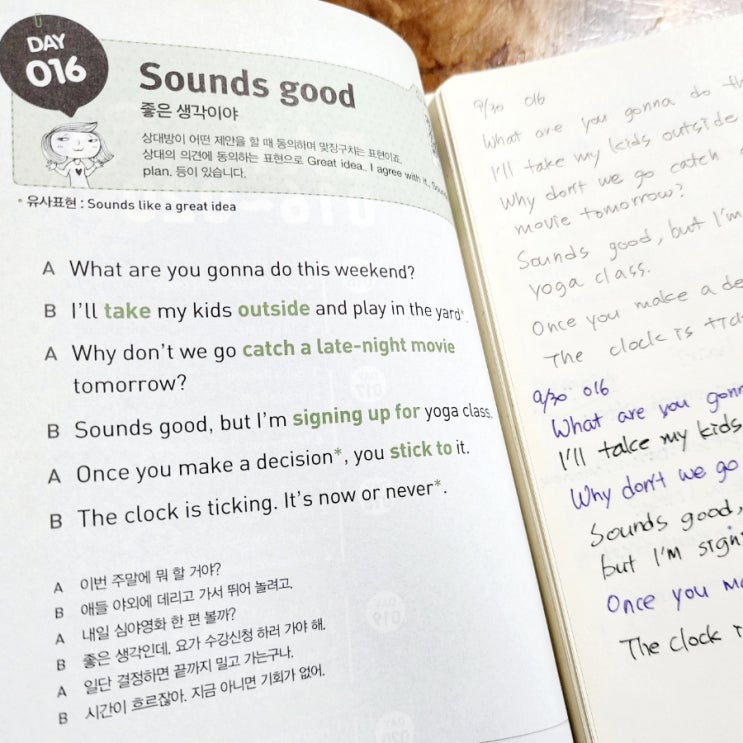 DAY
016
Sounds good
좋은 생각이야
상대방이 어떤 제안을 할 때 동의하며 맞장구치는 표현이죠.
상대의 의견에 동의하는 표현으로 Great idea., I agree with it,
plan. 등이 있습니다.
* 유사표현 : Sounds like a great idea
A What are you gonna do this weekend?
B I'll take my kids outside and play in the yard*.
A Why don't we go catch a late-night movie
tomorrow?
B Sounds good, but I'm signing up for yoga class.
A Once you make a decision*, you stick to it.
B The clock is ticking. It's now or never*.
A 이번 주말에 뭐 할 거야?
B 애들 야외에 데리고 가서 뛰어 놀려고.
A 내일 심야영화 한 편 볼까?
B 좋은 생각인데, 요가 수강신청 하러 가야 해.
A 일단 결정하면 끝까지 밀고 가는구나.
B 시간이 흐르잖아. 지금 아니면 기회가 없어.
9/30 016
What are you gonna do
I'll take my kids outside
Why don't we go catch
movie tomorrow?
Sounds good, but I'm
yoga class.
Once you make a
The clock is
9/30 016
What are you
I'll take my kids
Why don't we go
Sounds good,
but I'm
Once you
The clock